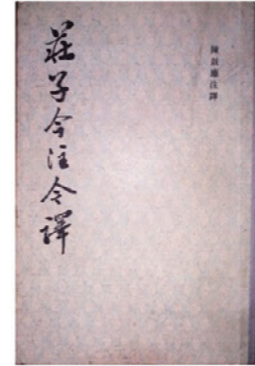 莊子今注今譯
陳鼓應注譯